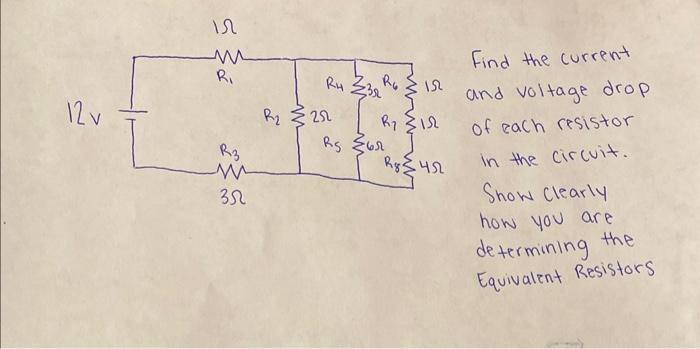 1Ω
R₁
12v
R₂
2Ω
R₃
3Ω
R₄
3Ω
R₅
6Ω
R₆
1Ω
R₇
1Ω
R₈
4Ω
Find the current
and voltage drop
of each resistor
in the circuit.
Show clearly
how you are
determining the
Equivalent Resistors